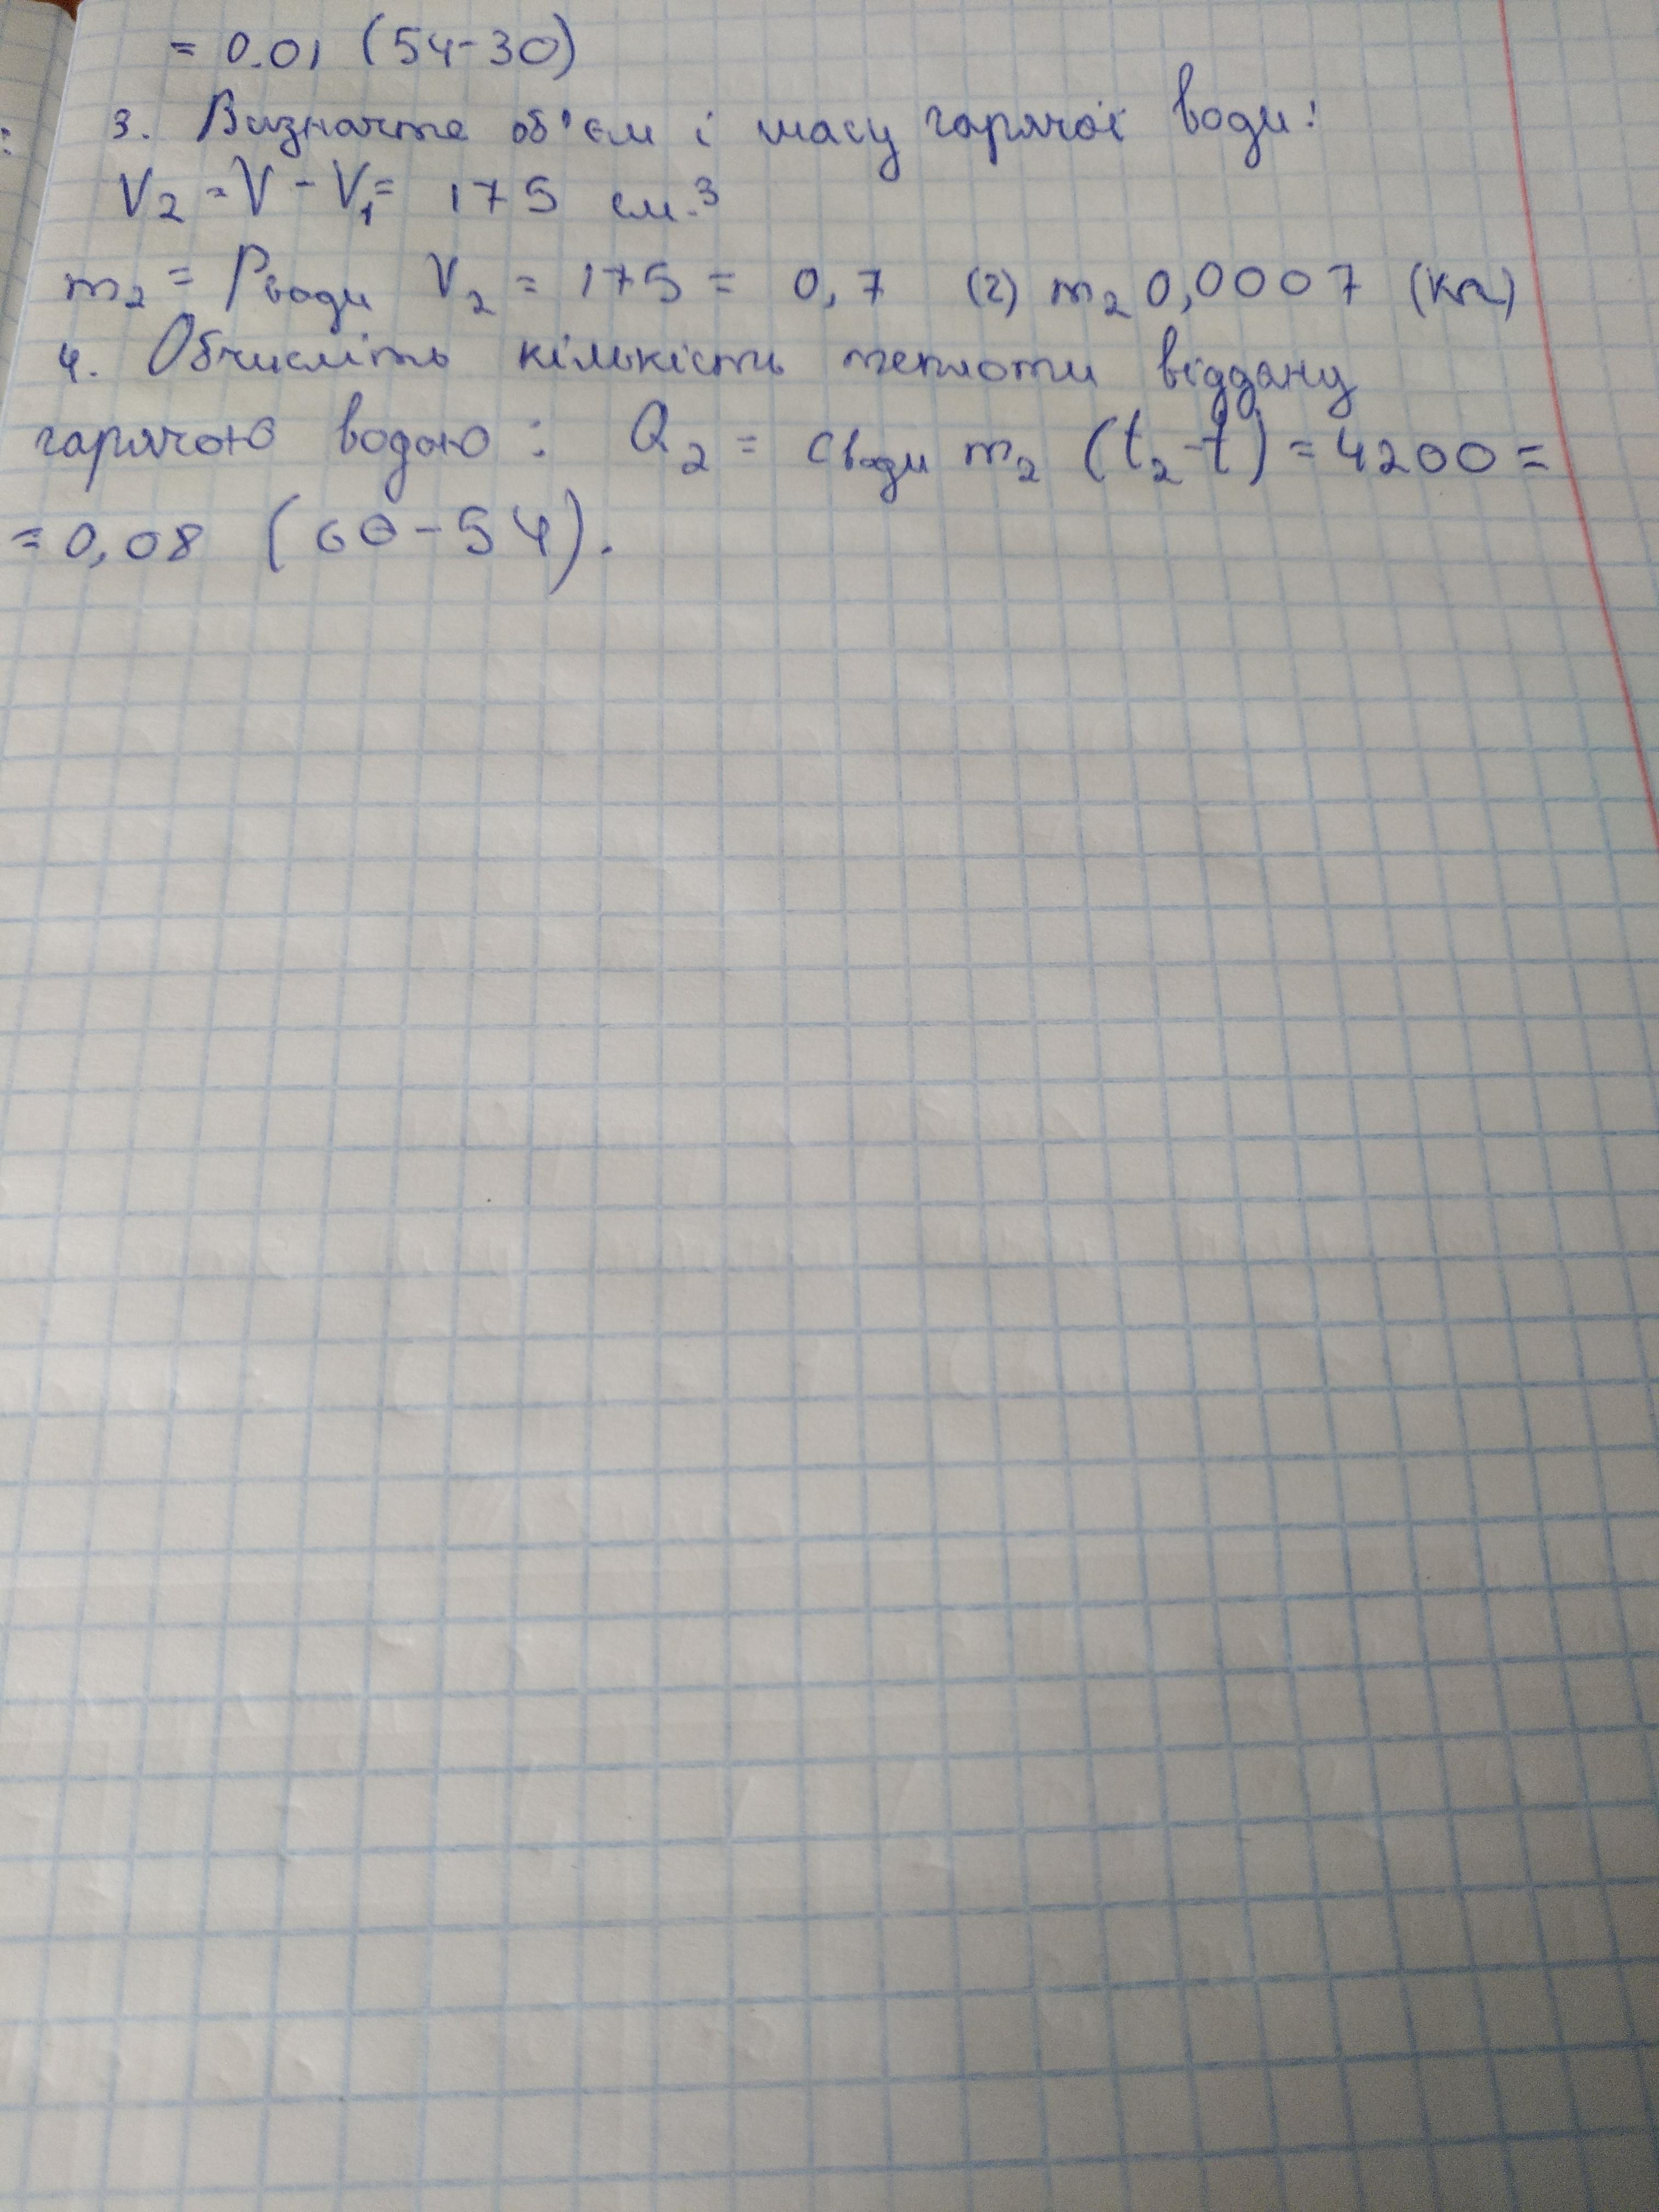 = 0.01 (54-30)
3. Визначте об'єм і масу гарячої води:
V₂ = V - V₁ = 175 см.³
m₂ = ρводи V₂ = 175 = 0,7 (г) m₂ 0,0007 (кг)
4. Обчисліть кількість теплоти віддану
гарячою водою: Q₂ = cводи m₂ (t₂-t) = 4200 =
= 0,08 (60-54).